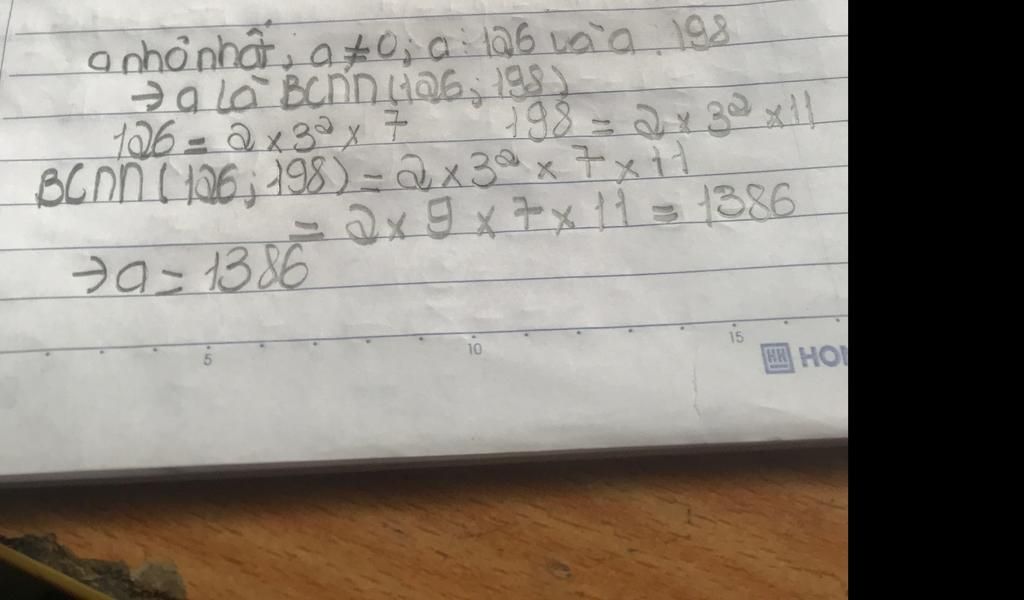 a nhỏ nhất, a ≠ 0; a ⋮ 126 và a ⋮ 198
→ a là BCNN(126; 198)
126 = 2 × 3² × 7 198 = 2 × 3² × 11
BCNN(126; 198) = 2 × 3² × 7 × 11
= 2 × 9 × 7 × 11 = 1386
→ a = 1386
5 10 15
HH